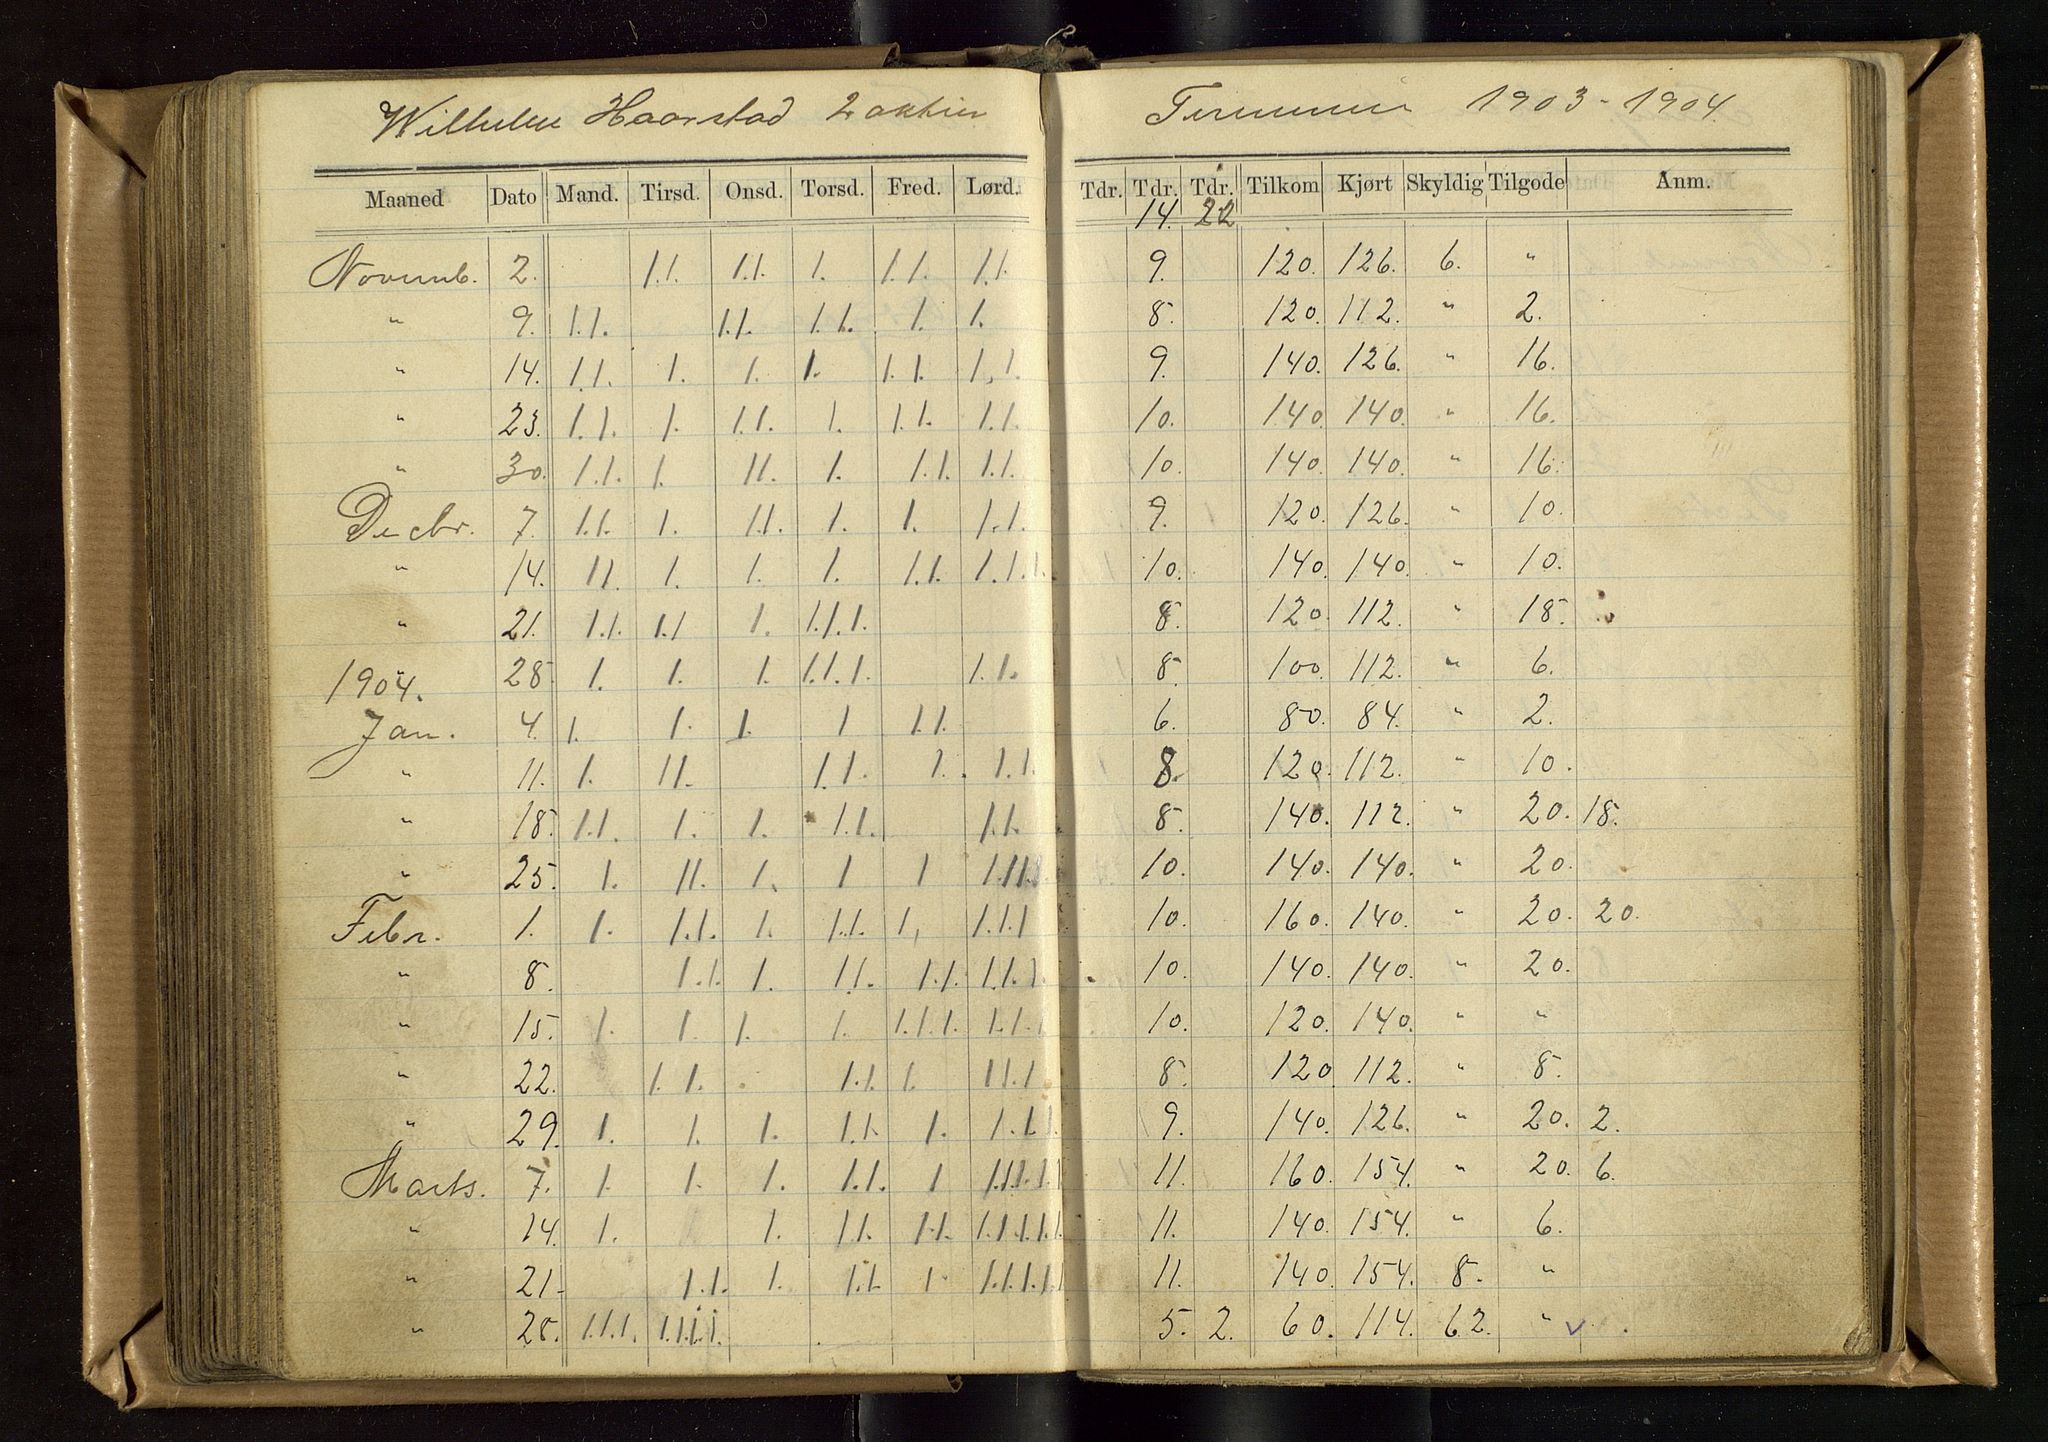 Wilhelm Haarstad 2 aktier Terminen 1903 - 1904.
Maaned Dato Mand. Tirsd. Onsd. Torsd. Fred. Lørd. Tdr. Tdr. Tdr. Tilkom Kjørt Skyldig Tilgode Anm.
14. 22
Novemb. 2. 1.1. 1.1. 1. 1.1. 1.1. 9. 120. 126. 6. "
" 9. 1.1. 1.1. 1.1. 1. 1. 8. 120. 112. " 2.
" 14. 1.1. 1. 1. 1. 1.1. 1.1. 9. 140. 126. " 16.
" 23. 1.1. 1. 1.1. 1. 1.1. 1.1. 10. 140. 140. " 16.
" 30. 1.1. 1. 11. 1. 1.1. 1.1. 10. 140. 140. " 16.
Decbr. 7. 1.1. 1. 11. 1. 1. 1.1. 9. 120. 126. " 10.
" 14. 11. 1. 1. 1. 1.1. 1.1.1. 10. 140. 140. " 10.
" 21. 1.1. 1.1 1. 1.1.1. 8. 120. 112. " 18.
28 1. 1. 1. 1.1.1. 1.1. 8. 100. 112. " 6.
1904.
Jan. 4. 1. 1. 1. 1 1.1. 6. 80. 84. " 2.
" 11. 1. 11. 1.1. 1. 1.1. 8. 120. 112. " 10.
" 18. 1.1. 1. 1. 1.1. 1.1. 8. 140. 112. " 20. 18.
" 25. 1. 11. 1. 1 1 1.11. 10. 140. 140. " 20.
Febr. 1. 1. 1.1. 1. 1.1. 1, 1.1.1 10. 160. 140. " 20. 20.
" 8. 1.1. 1. 1.1. 1.1. 1.1.1 10. 140. 140. " 20.
" 15. 1. 1. 1. 1. 1.1.1. 1.1.1 10. 120. 140. " "
" 22. 1.1. 1.1. 1. 11.1 8. 120. 112. " 8.
" 29. 1. 1. 1. 1.1. 1. 1.1.1 9. 140. 126. " 20. 2.
Marts. 7. 1. 1. 1. 1.1. 1 1.11.1 11. 160. 154. " 20. 6.
" 14. 1. 1. 1.1. 1.1. 1.1.1.1.1. 11. 140. 154. " 6.
" 21. 1.1. 1. 1.1. 1. 1.1.1.1.1 11. 140. 154. 8. "
" 28. 1.1.1. 1.1.1.1. 5. 2. 60. 114. 62. "